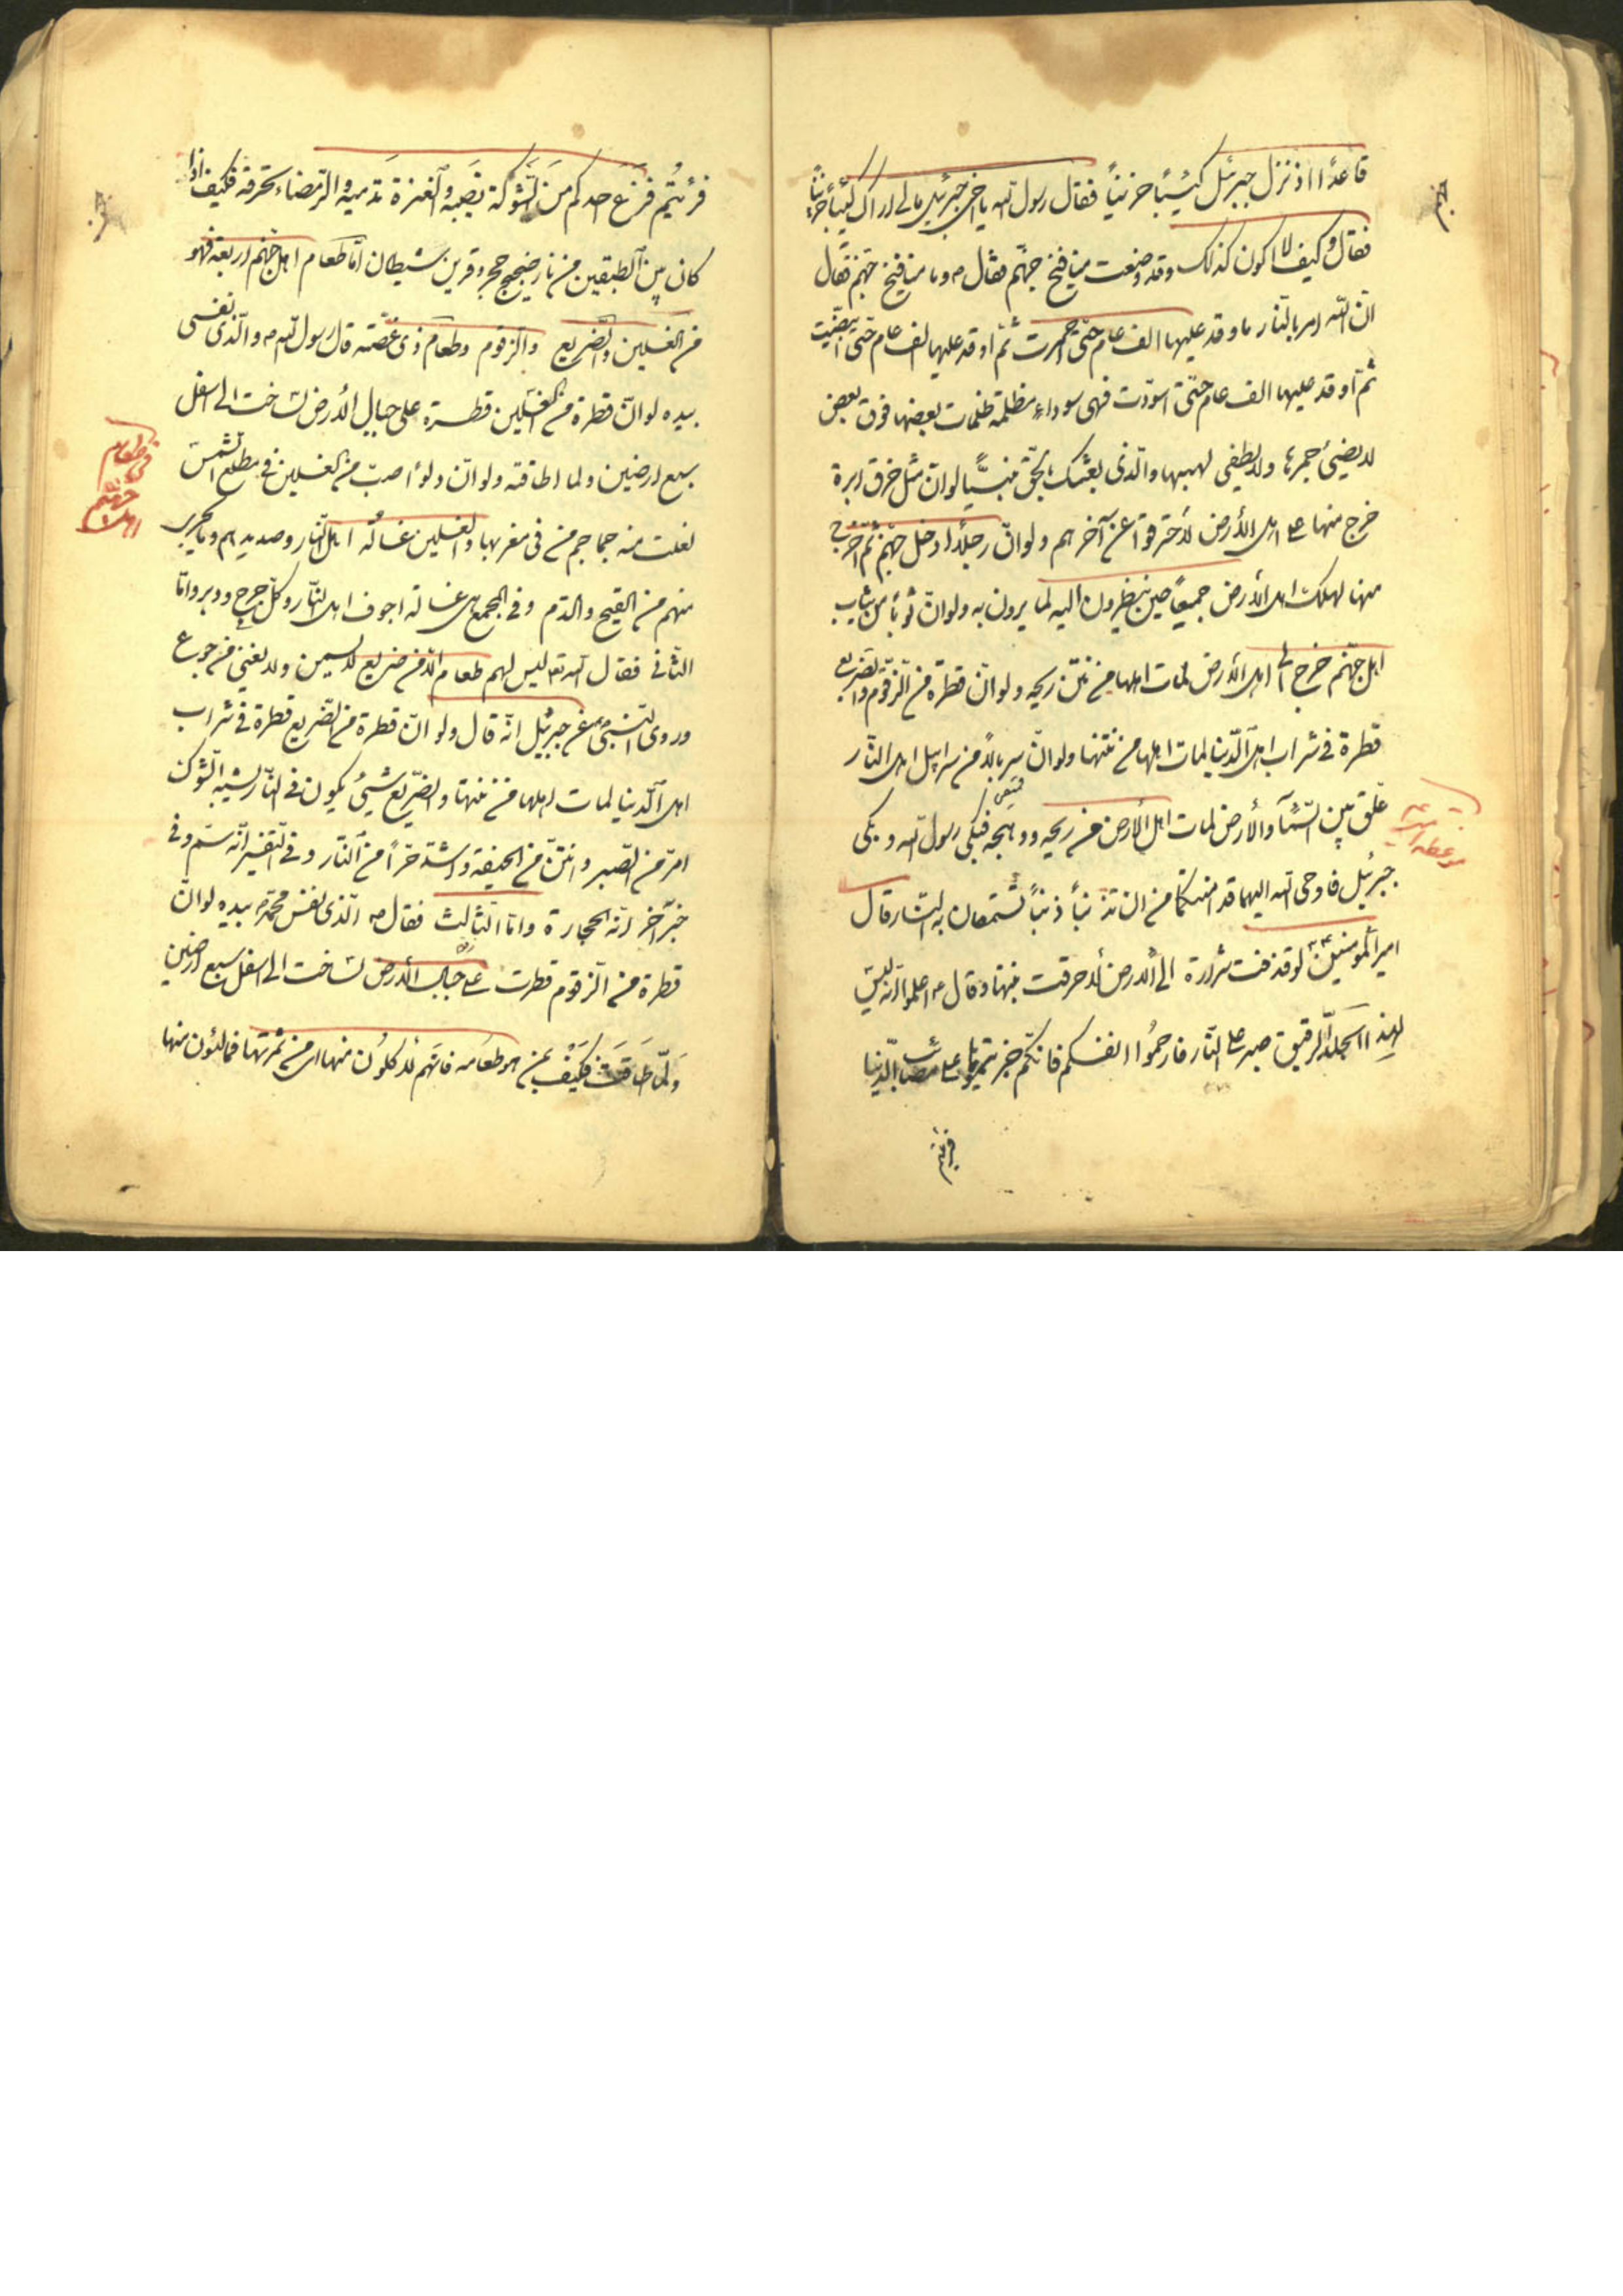 قاعدًا اذ نزل جبرئيل كئيبًا حزينًا فقال رسول الله يا اخى جبرئيل مالى اراك كئيبًا حزينًا
فقال وكيف لا اكون كذلك وقد وضعت منافيخ جهنّم فقال ص وما منافيخ جهنّم فقال
انّ الله امر بالنّار فاوقد عليها الف عام حتّى احمرت ثمّ اوقد عليها الف عام حتّى ابيضّت
ثمّ اوقد عليها الف عام حتّى اسودّت فهى سوداء مظلمة ظلمات بعضها فوق بعض
لا يضيئ جمرها ولا يطفى لهبها والّذى بعثك بالحقّ نبيًّا لو انّ مثل خرق ابرة
خرج منها على اهل الأرض لأحترقوا عن آخرهم ولو انّ رجلًا ادخل جهنّم ثمّ اخرج
منها لهلك اهل الأرض جميعًا حين ينظرون اليه لما يرون به ولو انّ ثوبًا من ثياب
اهل جهنّم خرج الى اهل الأرض لمات اهلها من نتن ريحه ولو انّ قطرة من الزّقوم والضريع
قطرة فى شراب اهل الدّنيا لمات اهلها من نتنها ولو انّ سربالًا من سرابيل اهل النّار
علّق بين السّمآء والأرض لمات اهل الأرض من ريحه ووهجه فبكى رسول الله وبكى
جبرئيل فاوحى الله اليهما قد امنتكما من ان تذنبا ذنبًا تستحقان به النّار قال
امير المؤمنين ع لو قذفت شرارة الى الأرض لأحرقت نبتها وقال ع اعلموا انّه ليس
لهذا الجلد الرقيق صبر على النّار فارحموا انفسكم فانّكم جربتموها على مصائب الدّنيا
فرئيتم
موعظه
فرئيتم فزع احدكم من الشّوكة تصيبه والعثرة تدميه والرّمضاء تحرقه فكيف اذا
كان بين الطبقين من نار ضجيع حجر وقرين شيطان امّا طعام اهل جهنّم اربعة فهو
من الغسلين والضريع والزقوم وطعام ذى غصّة قال رسول الله ص والّذى نفسى
بيده لو انّ قطرة من الغسلين قطرة على جبال الأرض لساخت الى اسفل
سبع ارضين ولما اطاقته ولو انّ دلوًا صبّ من الغسلين فى مطلع الشّمس
لغلت منه جماجم من فى مغربها والغسلين غسالة اهل النّار وصديدهم وما يجرى
منهم من القيح والدّم وفى المجمع هى غسالة اجوف اهل النّار وكلّ جرح ودبر وامّا
الثّانى فقال الله تع ليس لهم طعام الّا من ضريع لا يسمن ولا يغنى من جوع
وروى النّبى ص عن جبرئيل انّه قال ولو انّ قطرة من الضّريع قطرة فى شراب
اهل الدّنيا لمات اهلها من نتنها والضّريع شيئ يكون فى النّار يشبه الشّوك
امرّ من الصّبر وانتن من الجيفة واشدّ حرًّا من النّار وفى التّفسير انّه سمّ وفى
خبر آخر انّه الحجارة وامّا الثّالث فقال ص الّذى نفس محمّد ص بيده لو انّ
قطرة من الزّقوم قطرت على جبال الأرض لساخت الى اسفل سبع ارضين
ولمّا طاقت فكيف بمن هو طعامه فانّهم لآكلون منها اى من ثمرتها فمالئون منها
فى طعام
اهل جهنّم